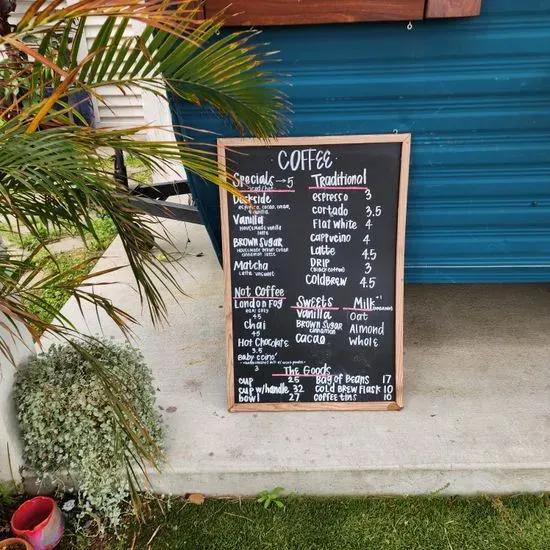 COFFEE
Specials → 5
iced/hot
Dockside
espresso, cacao, cream,
vanilla
Vanilla
housemade vanilla
latte
BROWN SUGAR
housemade brown sugar
cinnamon latte
Matcha
Latte
Traditional
espresso 3
cortado 3.5
Flat White 4
cappucino 4
Latte 4.5
DRIP 3
(Black coffee)
ColdBrew 4.5
Not Coffee
London Fog
earl grey
4.5
chai
4.5
Hot Chocolate
3.5
Baby ccino
3
Sweets
Vanilla
BROWN SUGAR
cinnamon
cacao
Milk
Oat
Almond
Whole
The Goods
cup 25
cup w/handle 32
bowl 27
Bag of Beans 17
cold Brew Flask 10
coffee tins 10